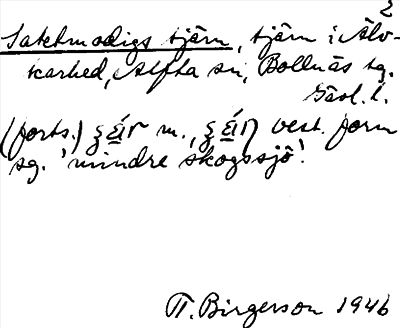 2
Saktmodigs tjärn, tjärn i Älv-
karhed, Alfta sn, Bollnäs tg.
Gävl. l.
(forts.) m., best. form
sg. 'mindre skogssjö'.
T. Birgerson 1946